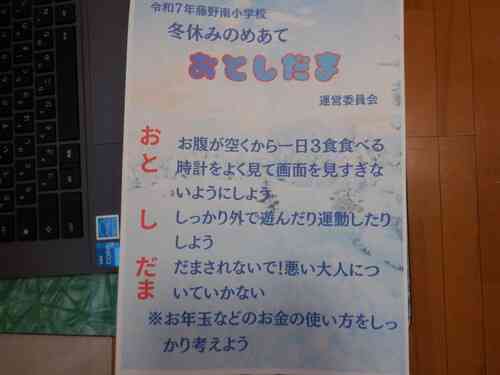 令和7年藤野南小学校
冬休みのめあて
おとしだま
運営委員会
お お腹が空くから一日3食食べる
と 時計をよく見て画面を見すぎな
いようにしよう
し しっかり外で遊んだり運動したり
しよう
だま だまされないで!悪い大人につ
いていかない
※お年玉などのお金の使い方をしっ
かり考えよう